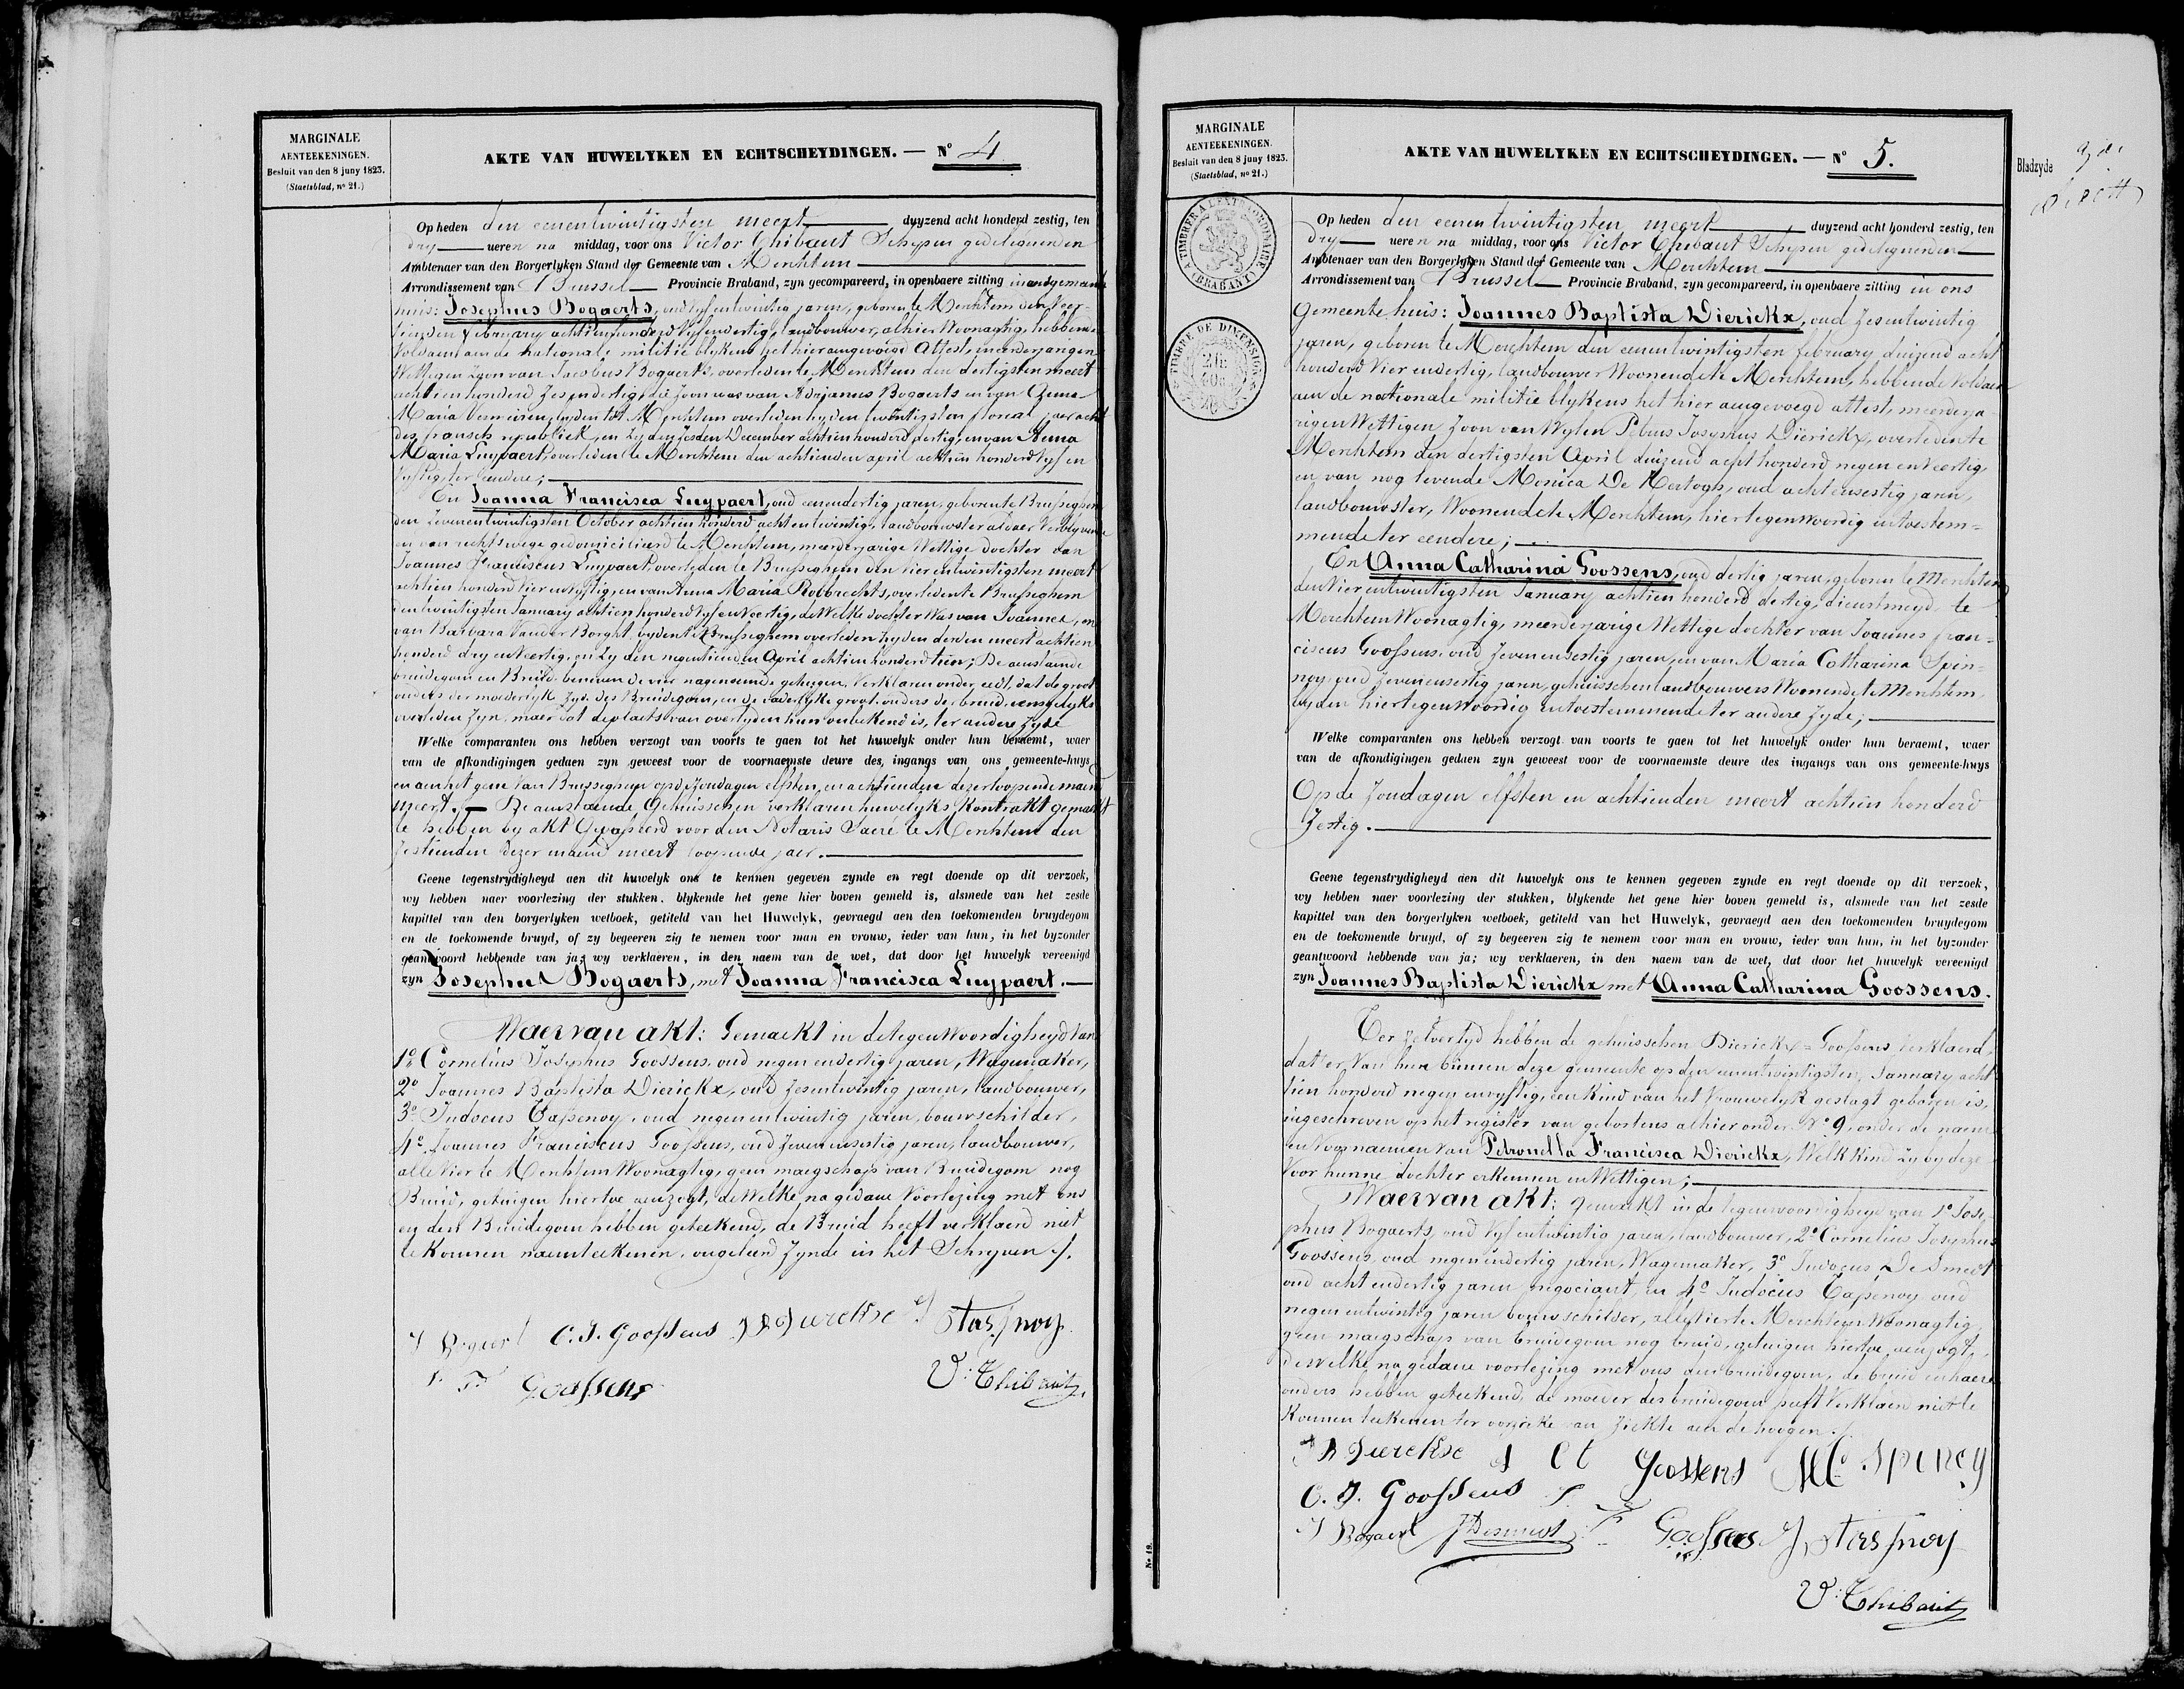 MARGINALE
AENTEEKENINGEN.
Besluit van den 8 juny 1823.
(Staetsblad, nº 21.)
AKTE VAN HUWELYKEN EN ECHTSCHEYDINGEN. — Nº 4
Op heden den eenentwintigsten meert duyzend acht honderd zestig, ten
dry ueren na middag, voor ons Victor Thibaut Schepen gedelegueerden
Ambtenaer van den Borgerlyken Stand der Gemeente van Merchtem
Arrondissement van Brussel Provincie Braband, zyn gecompareerd, in openbaere zitting in ons gemeente
huis: Josephus Bogaerts, oud vyfentwintig jaren, geboren te Merchtem den veer-
tienden february achtienhonderd vyfendertig, landbouwer, alhier woonagtig, hebbende
voldaen aen de nationale militie blykens het hier aengevoegd attest, meerderjarigen
Wettigen Zoon van Jacobus Bogaerts, overleden te Merchtem den dertigsten meert
achtienhonderd zesendertig, die zoon was van Adrianus Bogaerts en van Anna
Maria Vermeiren, byden te Merchtem overleden hy den twintigsten floreal jaer acht
der fransch republiek, en zy den zesden December achtienhonderd dertig, en van Anna
Maria Luypaert, overleden te Merchtem den achtienden april achtien honderd vyf en
vyftig, ter eendere;
En Joanna Francisca Luypaert, oud eenendertig jaren, geboren te Brusseghem
den zevenentwintigsten October achtien honderd achtentwintig, landbouwster aldaer verblyvende
en van rechtswege gedomicilieerd te Merchtem, meerderjarige Wettige dochter van
Joannes Franciscus Luypaert, overleden te Brusseghem den vierentwintigsten meert
achtien honderd vierenvyftig, en van Anna Maria Robbrechts, overleden te Brusseghem
entwintigsten January achtien honderd vyfenveertig, de Welke dochter was van Joannes, en
van Barbara Vander Borght, byden te Brusseghem overleden hy den derden meert achtien
honderd dry en veertig, en zy den negentienden April achtienhonderd tien; De aenstaende
bruidegom en Bruid benevens de vier nagenoemde getuigen, verklaren onder eedt, dat de groot
ouders der moederlyke zyde des Bruidegom, en de vaderlyke groot-ouders der bruid insgelyks
overleden zyn, maer dat de plaets van overlyden hun onbekend is, ter andere zyde
Welke comparanten ons hebben verzogt van voorts te gaen tot het huwelyk onder hun beraemt, waer
van de afkondigingen gedaen zyn geweest voor de voornaemste deure des, ingangs van ons gemeente-huys
en aen het gene van Brusseghem op de zondagen elfsten, en achtienden dezer loopende maend
meert. De aenstaende Gehuisschen verklaren huwelyks Kontrakt gemaekt
te hebben by akt Gepasseerd voor den Notaris Sacré te Merchtem den
zestienden dezer maend meert loopende jaer.
Geene tegenstrydigheyd aen dit huwelyk ons te kennen gegeven zynde en regt doende op dit verzoek,
wy hebben naer voorlezing der stukken, blykende het gene hier boven gemeld is, alsmede van het zesde
kapittel van den borgerlyken wetboek, getiteld van het Huwelyk, gevraegd aen den toekomenden bruydegom
en de toekomende bruyd, of zy begeeren zig te nemen voor man en vrouw, ieder van hun, in het byzonder
geantwoord hebbende van ja; wy verklaeren, in den naem van de wet, dat door het huwelyk vereenigd
zyn Josephus Bogaerts, met Joanna Francisca Luypaert.
Waervan akt: Gemaekt in de tegenwoordigheyd van
1º Cornelius Josephus Goossens oud negenendertig jaren, Wagemaker,
2º Joannes Baptista Dierickx, oud zesentwintig jaren, landbouwer,
3º Judocus Tassenoy, oud negenentwintig jaren, bouwschilder,
4º Joannes Franciscus Goossens, oud zevenensestig jaren, landbouwer,
alle vier te Merchtem Woonagtig, geen maegschap van Bruidegom nog
Bruid, getuigen hiertoe aenzogt, de Welke, na gedane Voorlezing met ons
en den Bruidegom hebben geteekend, de Bruid heeft verklaerd niet
te konnen naemteekenen, ongeleerd zynde in het Schryven.
J Bogaert C. J. Goossens J B Dierckse J Stassnoy
J. F. Goossens V. Thibaut
MARGINALE
AENTEEKENINGEN.
Besluit van den 8 juny 1823.
(Staetsblad, nº 21.)
AKTE VAN HUWELYKEN EN ECHTSCHEYDINGEN. — Nº 5.
Bladzyde
TIMBRE A L'EXTRAORDINAIRE (BRABANT)
TIMBRE DE DIMENSION
Op heden den eenentwintigsten meert duyzend acht honderd zestig, ten
dry ueren na middag, voor ons Victor Thibaut Schepen gedelegueerden
Ambtenaer van den Borgerlyken Stand der Gemeente van Merchtem
Arrondissement van Brussel Provincie Braband, zyn gecompareerd, in openbaere zitting in ons
Gemeente huis: Joannes Baptista Dierickx, oud zesentwintig
jaren, geboren te Merchtem den eenentwintigsten february duizend acht
honderd Vier endertig, landbouwer Woonende te Merchtem, hebbende Voldaen
aen de nationale militie blykens het hier aengevoegd attest, meerderja-
rigen Wettigen Zoon van Wylen Petrus Josephus Dierickx, overleden te
Merchtem den dertigsten April duizend acht honderd negen en Veertig,
en van nog levende Monica De Hertogh, oud achtensestig jaren,
landbouwster, Woonende te Merchtem, hier tegenwoordig en toestem-
mende ter eendere;
En Anna Catharina Goossens, oud dertig jaren, geboren te Merchtem
den Vierentwintigsten January achtien honderd dertig, dienstmeyd te
Merchtem Woonagtig, meerderjarige Wettige dochter van Joannes fran-
ciscus Goossens, oud Zevenensestig jaren, en van Maria Catharina Spin-
noy, oud zevenensestig jaren, gehuisschen landbouwers Woonende te Merchtem,
byden hiertegenwoordig en toestemmende ter andere zyde;
Welke comparanten ons hebben verzogt van voorts te gaen tot het huwelyk onder hun beraemt, waer
van de afkondigingen gedaen zyn geweest voor de voornaemste deure des ingangs van ons gemeente-huys
Op de Zondagen elfsten en achtienden meert achtien honderd
Zestig.
Geene tegenstrydigheyd aen dit huwelyk ons te kennen gegeven zynde en regt doende op dit verzoek,
wy hebben naer voorlezing der stukken, blykende het gene hier boven gemeld is, alsmede van het zesde
kapittel van den borgerlyken wetboek, getiteld van het Huwelyk, gevraegd aen den toekomenden bruydegom
en de toekomende bruyd, of zy begeeren zig te nemem voor man en vrouw, ieder van hun, in het byzonder
geantwoord hebbende van ja; wy verklaeren, in den naem van de wet, dat door het huwelyk vereenigd
zyn Joannes Baptista Dierickx met Anna Catharina Goossens.
Ter zelvertyd hebben de gehuisschen Dierickx = Goossens verklaerd,
dat er van hun binnen deze gemeente op den eenentwintigsten January acht
tien honderd negen en vyftig, een kind van het Vrouwelyk geslagt geboren is,
ingeschreven op het register van geboortens alhier onder Nº 9, onder de naem
en Voornaemen van Petronella Francisca Dierickx, Welk kind zy by deze
voor hunne dochter erkennen en Wettigen;
Waervan akt: gemaekt in de tegenwoordigheyd van 1º Jose-
phus Bogaerts, oud Vyfentwintig jaren, landbouwer, 2º Cornelius Josephus
Goossens, oud negenendertig jaren, Wagemaker, 3º Judocus De Smedt
oud achtendertig jaren negociant, en 4º Judocus Tassenoy oud
negenentwintig jaren bouwschilder, alle Vier te Merchtem Woonagtig
geen maegschap van bruidegom nog bruid, getuigen hiertoe aenzogt,
dewelke na gedane voorlezing met ons den bruidegom, de bruid en haere
ouders hebben geteekend, de moeder des bruidegom heeft verklaerd niet te
konnen teekenen ter oorzeke van ziekte aen de hoogen.
J B Dierckse A C Goossens M C Spinoy
C. J. Goossens
J Bogaert J Desmedt J F Goossens J Stassnoy
V. Thibaut
Nº 19.